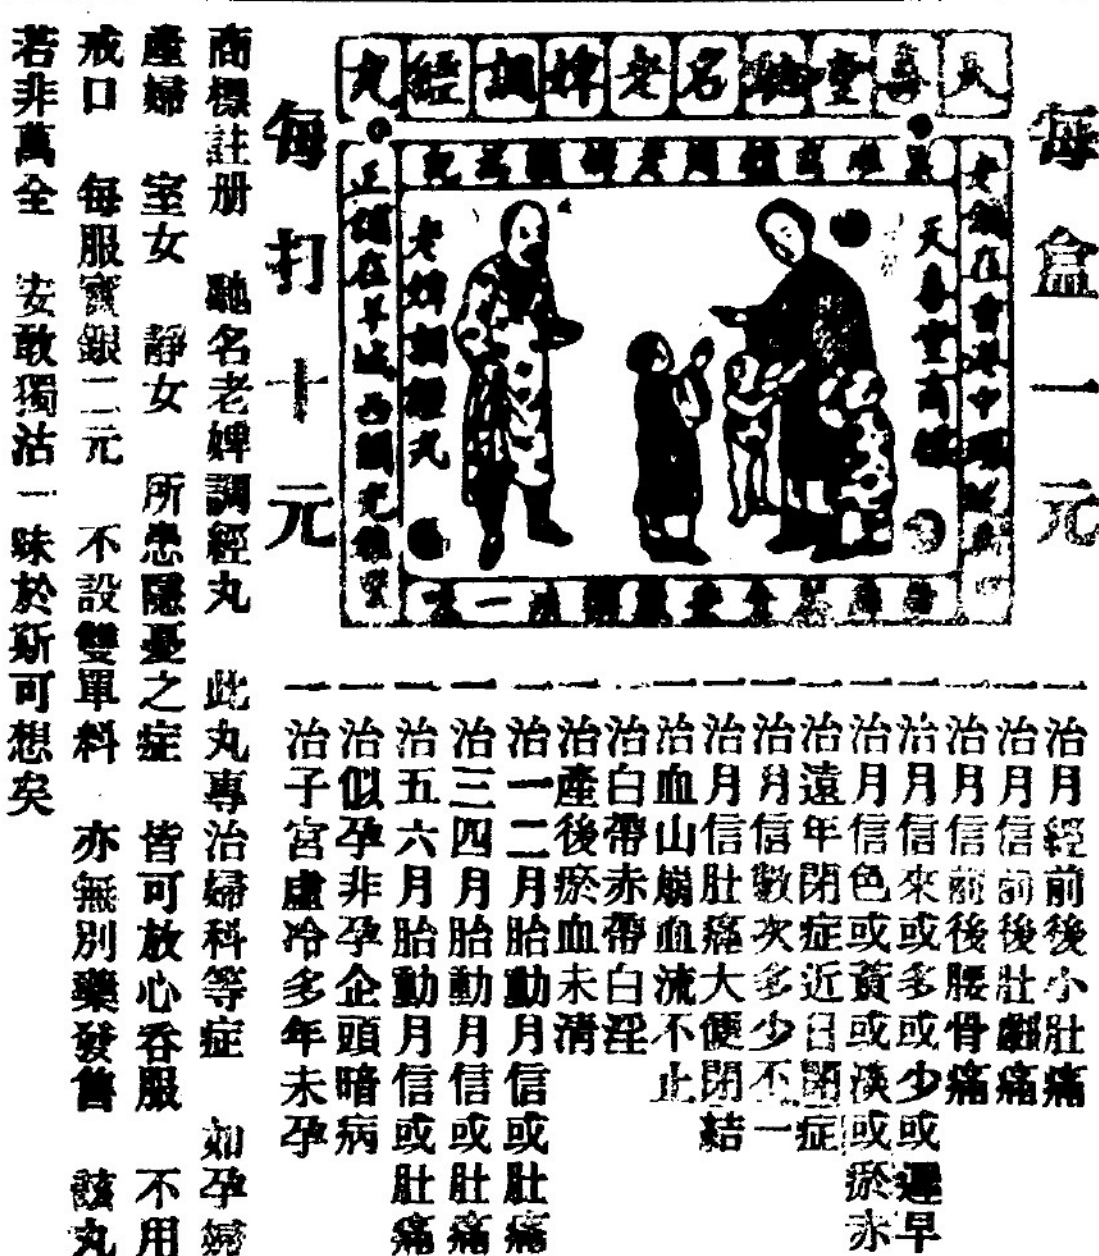 每盒一元
天喜堂馳名老婢調經丸
天喜堂商標
老婢調經丸
每打十元
一治月經前後小肚痛
一治月信前後肚痛
一治月信前後腰骨痛
一治月信來或多或少或遲早
一治月信色或黃或淡或瘀赤
一治遠年閉症近日閉症
一治月信數次多少不一
一治月信肚痛大便閉結
一治血山崩血流不止
一治白帶赤帶白淫
一治產後瘀血未清
一治一二月胎動月信或肚痛
一治三四月胎動月信或肚痛
一治五六月胎動月信或肚痛
一治似孕非孕企頭暗病
一治子宮虛冷多年未孕
商標註册 馳名老婢調經丸 此丸專治婦科等症 如孕婦
產婦 室女 靜女 所患隱憂之症 皆可放心吞服 不用
戒口 每服寶銀二元 不設雙單料 亦無別藥發售 該丸
若非萬全 安敢獨沽一味於斯可想矣